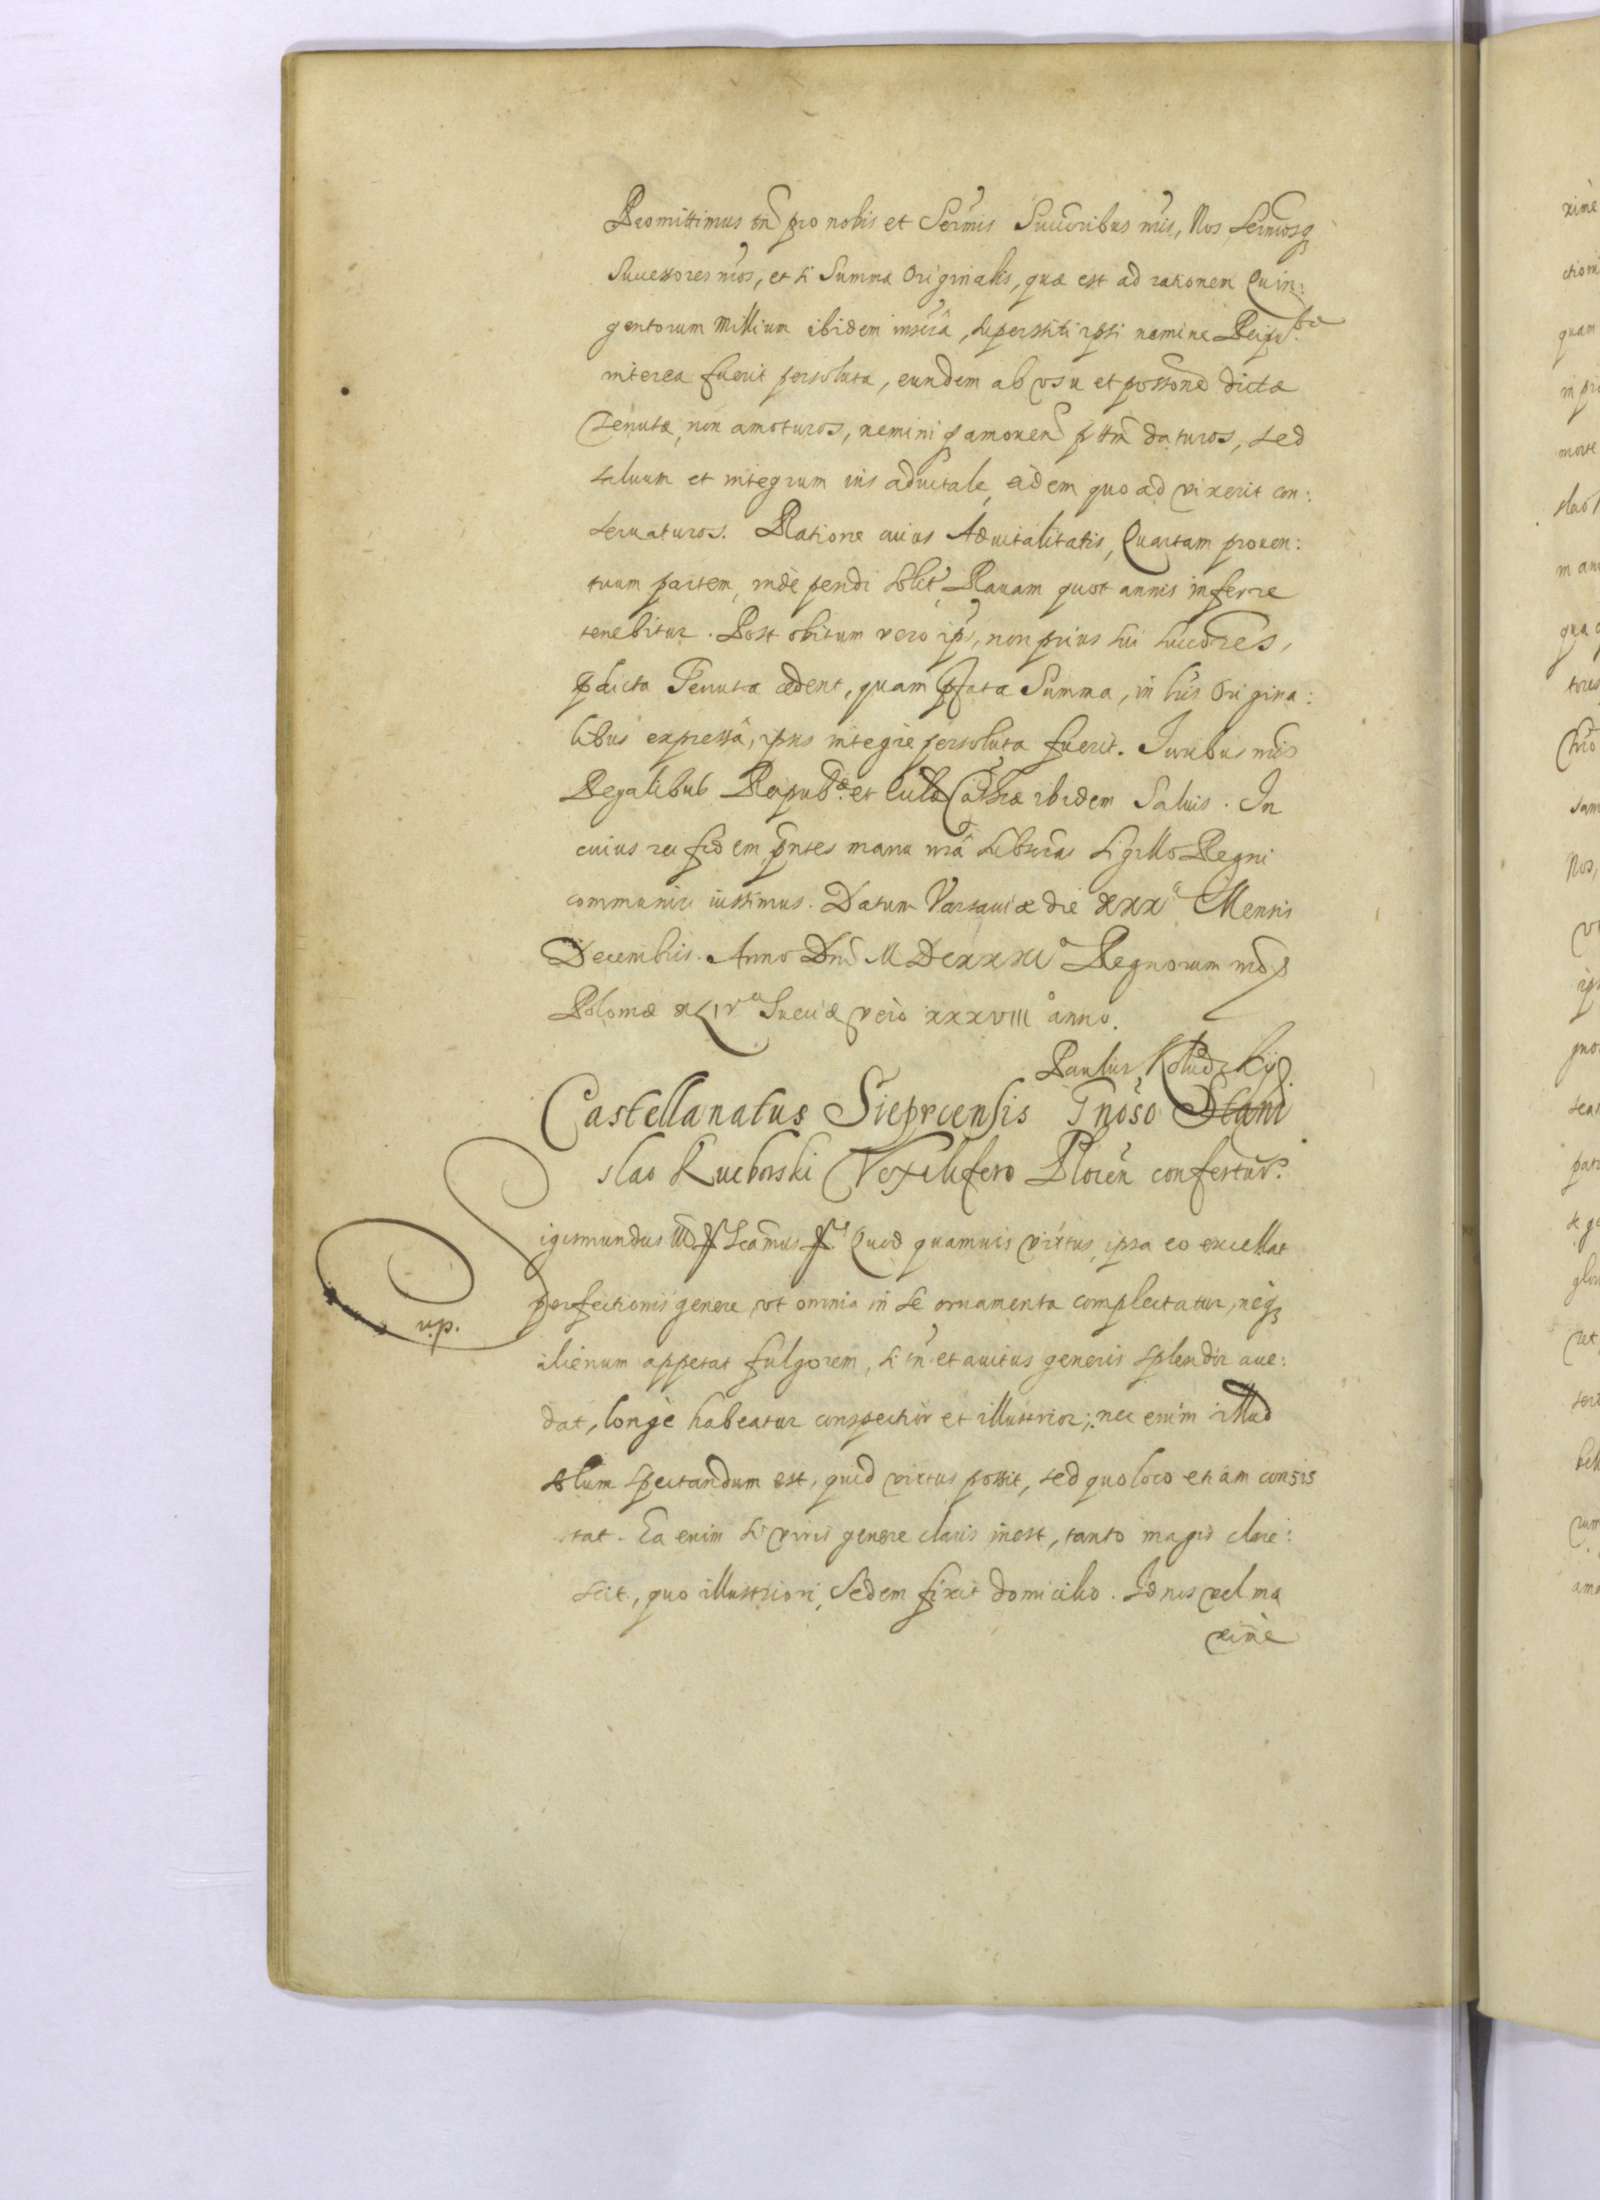 Promittimus tn̄ pro nobis et Sermis Succoribus nris, Nos Sermosq
Successores nros, et si Summa Originalis, quæ est ad rationem Quin:
gentorum Millium ibidem inscra, superstiti ipsi nomine Reipu.
interea fuerit persoluta, eundem ab vsu et possone dictæ
Tenutæ, non amoturos, nemini q amouen ptm daturos, sed
saluum et integrum ius aduitale, eidem quo ad vixerit con:
seruaturos. Ratione cuius Aduitalitatis, Quartam prouen:
tuum partem, inde pendi solit, Rauam quot annis inferre
tenebitur. Post obitum vero ips, non prius sui succores,
pdicta Tenuta cedent, quam pfata Summa, in lris Origina:
libus expressa, ipsis integre persoluta fuerit. Iuribus nris
Regalibus Reipub. et Ecclæ Cathcæ ibidem Saluis. In
cuius rei fidem pntes manu nra subscras Sigillo Regni
communiri iussimus. Datum Varsauiæ die xxx Mensis
Decembris. Anno Dni M DCXXXI Regnorum nror
Poloniæ XLIV Sueciæ vero xxxviii anno.
Paulus Kołudzkÿ
Castellanatus Sieprcensis Gnoso Stani
slao Kucborski Vexilifero Plocen confertur.
igismundus III Scamus Quod quamuis virtus ipsa eo excellat
perfectionis genere, vt omnia in se ornamenta complectatur, neq
v.p.
alienum appetat fulgorem, si tn et auitus generis splendor acce:
dat, longe habeatur conspectior et illustrior; nec enim illud
solum spectandum est, quid virtus possit, sed quo loco etiam consis
tat. Ea enim si viris genere claris inest, tanto magis clare:
scit, quo illustriori, Sedem fixit domicilio. Id nos vel ma
xime